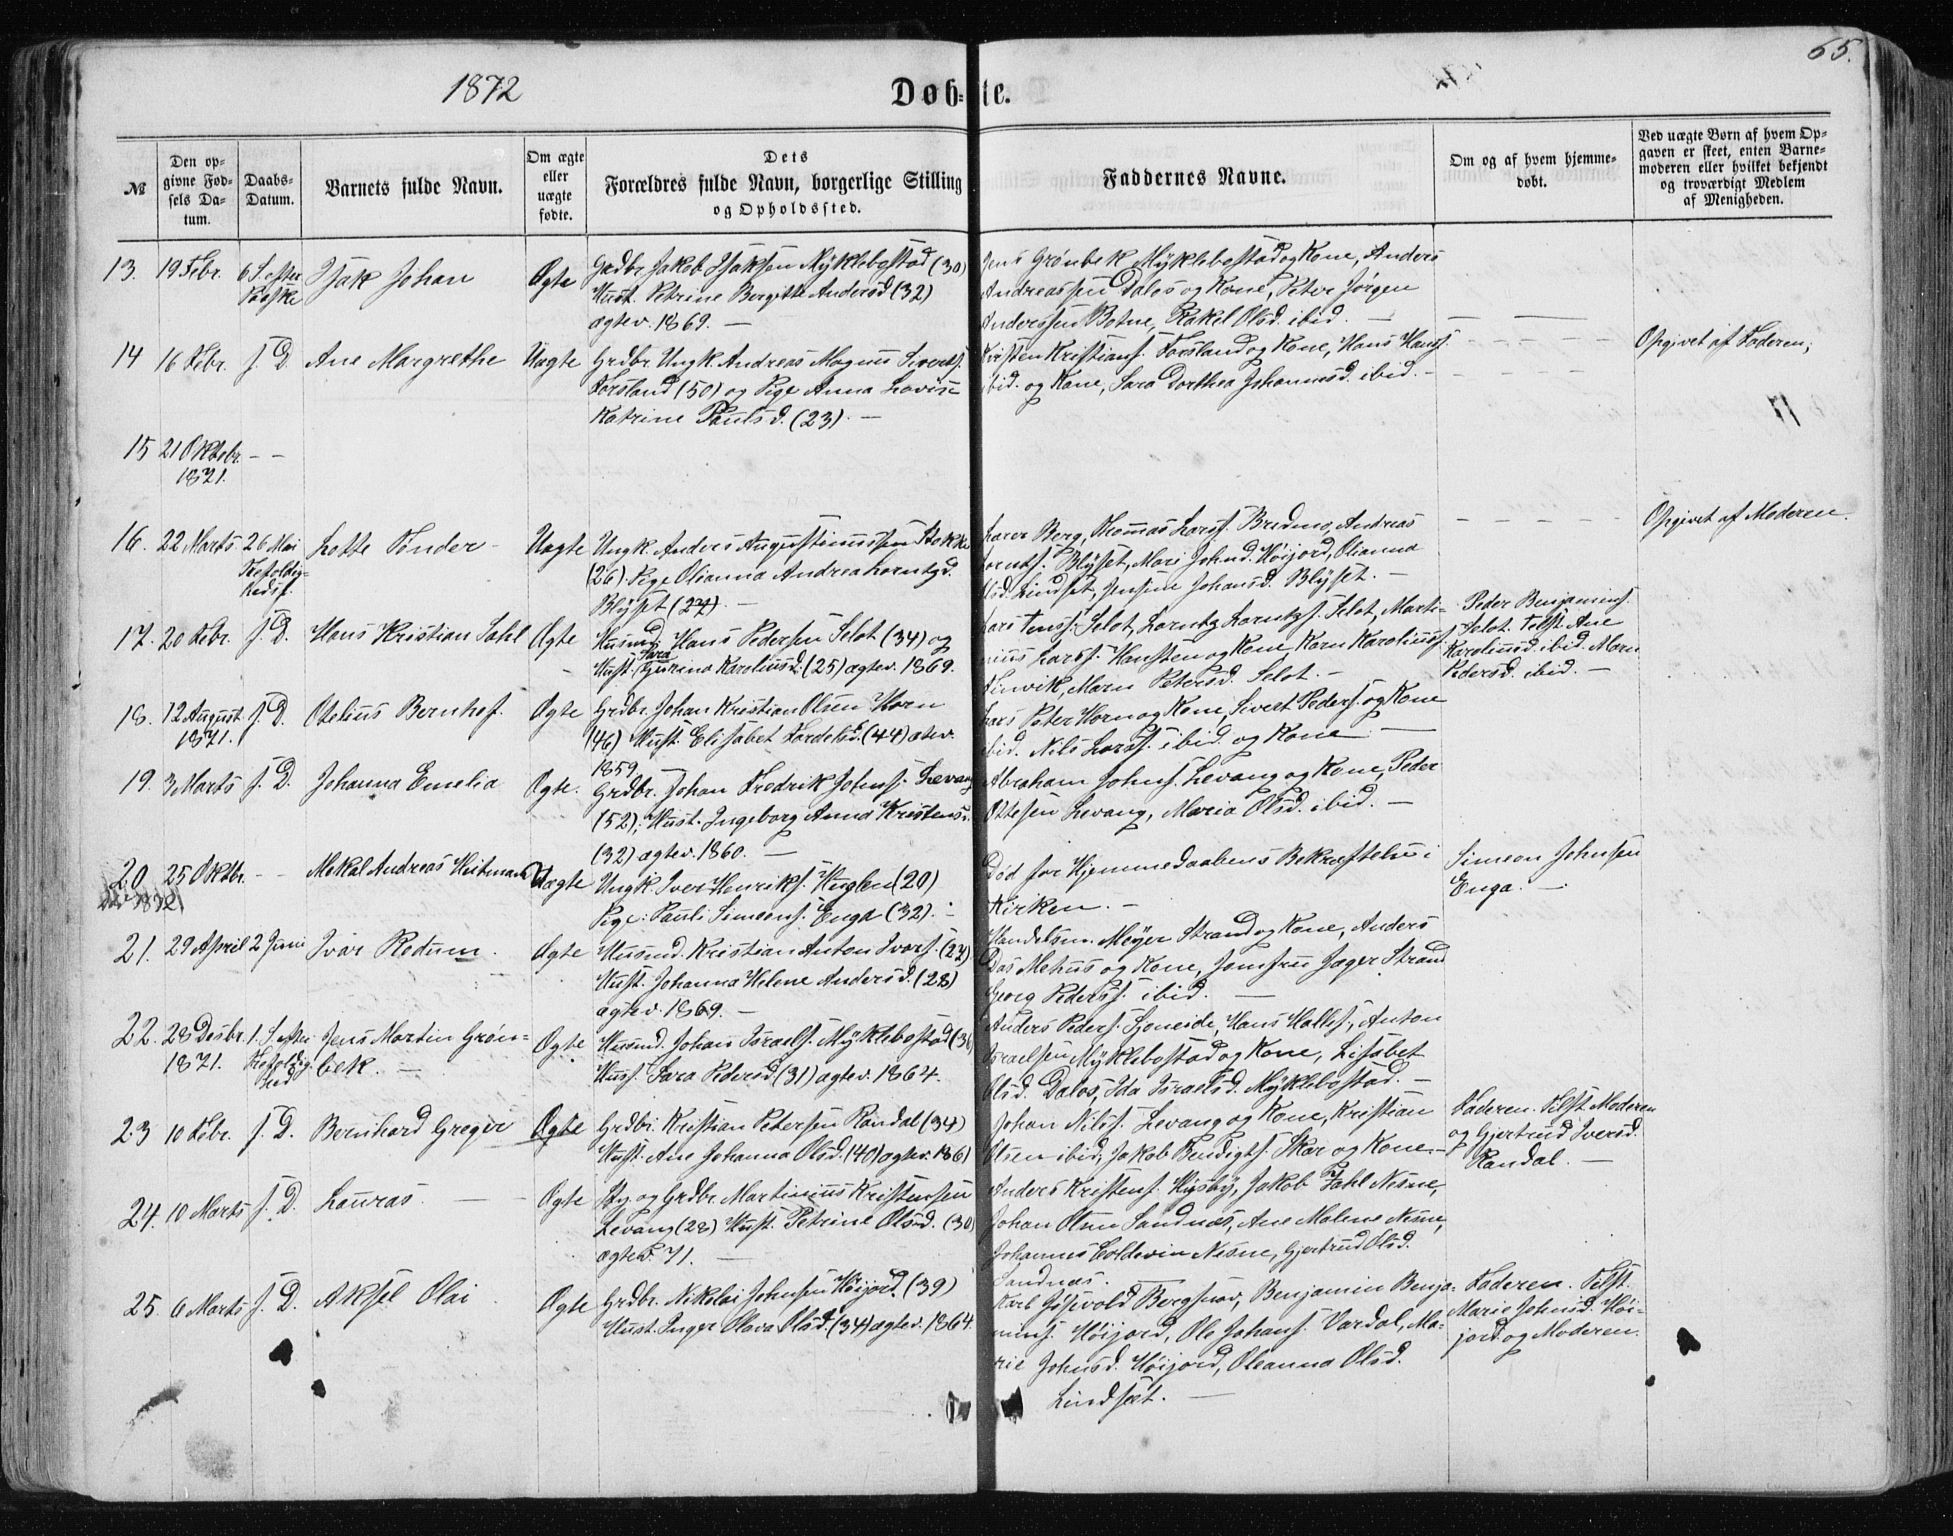 1872
Døb-te.
65.
№
Den op-
givne Fød-
sels Da-
tum.
Daabs-
Datum.
Barnets fulde Navn.
Om ægte
eller
uægte
fødte.
Dets
Forældres fulde Navn, borgerlige Stilling
og Opholdssted.
Faddernes Navne.
Om og af hvem hjemme-
døbt.
Ved uægte Børn af hvem Op-
gaven er skeet, enten Barne-
moderen eller hvilket bekjendt
og troværdigt Medlem
af Menigheden.
13. 19 Febr. 6 S. efter
Paaske
Isak Johan
Ægte
Gadbr Jakob Isaksen Myklebostad (30)
Hust. Petrine Bergitte Andersd (32)
ægtev. 1869. —
Jens Grønbek Myklebostad og Kone, Anders
Andreassen Dalos og Kone, Peter Jørgen
Anderssen Botne, Rakel Olsd. ibid. —
14 16 Febr. s. D.
Ane Margrethe
Uægte
Grdbr. Ungk. Andreas Magnus Sivers.
Forsland (50) og Pige Anna Lovise
Katrine Paulsd. (23). —
Kirsten Kristians. Forsland og Kone, Hans Hans.
ibid. og Kone, Sara Dorthea Johannesd. ibid. —
Opgivet af Faderen,
15 21 Oktobr. — —
1871.
16. 22 Marts 26 Mai
Trefoldig-
hedsf.
Lotte Tønder
Uægte
Ungk. Anders Augustinussen Stokke
(26). Pige Olianna Andrea Lorntzd.
Blyset (24). —
Larer Berg, Thomas Larss. Bredmo, Andreas
Lorntss. Blyset, Mari Johnd. Høijord, Olianna
Olsd. Lindset, Jensine Johansd. Blyset. —
Opgivet af Moderen.
17. 20 Febr. s. D.
Hans Kristian Sahl
Ægte
Husmd. Hans Pedersen Selot (34) og
Hust. Sara Gjurina Karoliusd. (25) ægtev. 1869.
Lars Jenss. Selot, Lorntz Lorntzs. Selot, Marti-
nius Larss. Hansten og Kone, Karn Karoliuss.
Finvik, Marn Petersd. Selot. —
Peder Benjamins.
Selot. Tilst. Ane
Karoliusd. ibid. Marn
Pedersd. ibid. —
18. 12 August s. D.
1871.
Otelius Bernhof.
Ægte
Grdbr. Johan Kristian Olsen Horn
(46) Hust. Elisabet Tordelsd. (44) ægtev.
1859.
Lars Peter Horn og Kone, Sivert Peders. og Kone
ibid. Nils Larss. ibid. og Kone —
19. 3 Marts s. D.
Johanna Emelia
Ægte.
Grdbr. Johan Fredrik Johns. Levang
(52); Hust. Ingeborg Anna Kristensd.
(32) ægtev. 1860. —
Abraham Johns. Levang og Kone, Peder
Ottesen Levang, Maria Olsd. ibid. —
20 25 Oktbr. — —
Mekal Andreas Heitmann
Uægte
Ungk. Iver Henriks. Huglen (20)
Pige: Pauli Simeons. Enga (32). —
Død før Hjemmedaabens Bekræftelse i
Kirken. —
Simeon Johnsen
Enga. —
21. 29 April 2 Juni
Ivar Rodum.
Ægte
Husmd. Kristian Anton Ivars. (27)
Hust. Johanna Helene Andersd. (28)
ægtev. 1869. —
Handelsm. Meyer Strand og Kone, Anders
Das Mehus og Kone, Jomfru Jæger Strand
Georg Pederss. ibid. —
22. 28 Desbr. 1. S. efter
1871. Trefoldig
hed
Jens Martin Grøn-
bek. —
Ægte
Husmd. Johan Israels. Myklebostad (36)
Hust. Sara Pedersd. (31) ægtev. 1864.
Anders Peders. Sjoneide, Hans Halles., Anton
Israelsen Myklebostad og Kone, Lisabet
Olsd. Dalos, Ida Israelsd. Myklebostad. —
23 10 Febr. s. D.
Bernhard Greger
Ægte
Grdbr. Kristian Petersen Randal (34)
Hust. Ane Johanna Olsd. (40) ægtev. 1861
Johan Nilss. Levang og Kone, Kristian
Olsen ibid, Jakob Bendigts. Skar og Kone. —
Faderen. Tilst. Moderen
og Gjertrud Iversd.
Randal. —
24. 10 Marts s. D.
Lauras. —
Ægte
By og Grdbr. Martinius Kristensen
Levang (28) Hust. Petrine Olsd. (30)
ægtev. 71. —
Anders Kristens. Husby, Jakob Zahl Nesne,
Johan Olsen Sandnæs, Ane Malene Nesne,
Johannes Coldevin Nesne, Gjertrud Olsd.
Sandnæs.
25. 6 Marts s. D.
Aksel Olai
Ægte
Grdbr. Nikolai Johnsen Høijord. (39)
Hust. Inger Olava Olsd. (34) ægtev. 1864.
Karl Jøsevold Bergsnov, Benjamin Benja-
mins. Høijord, Ole Johans. Vardal, Ma-
rie Johnsd. Høijord, Oleanna Olsd.
Lindset. —
Faderen. Tilst.
Marie Johnsd. Høi-
jord og Moderen.